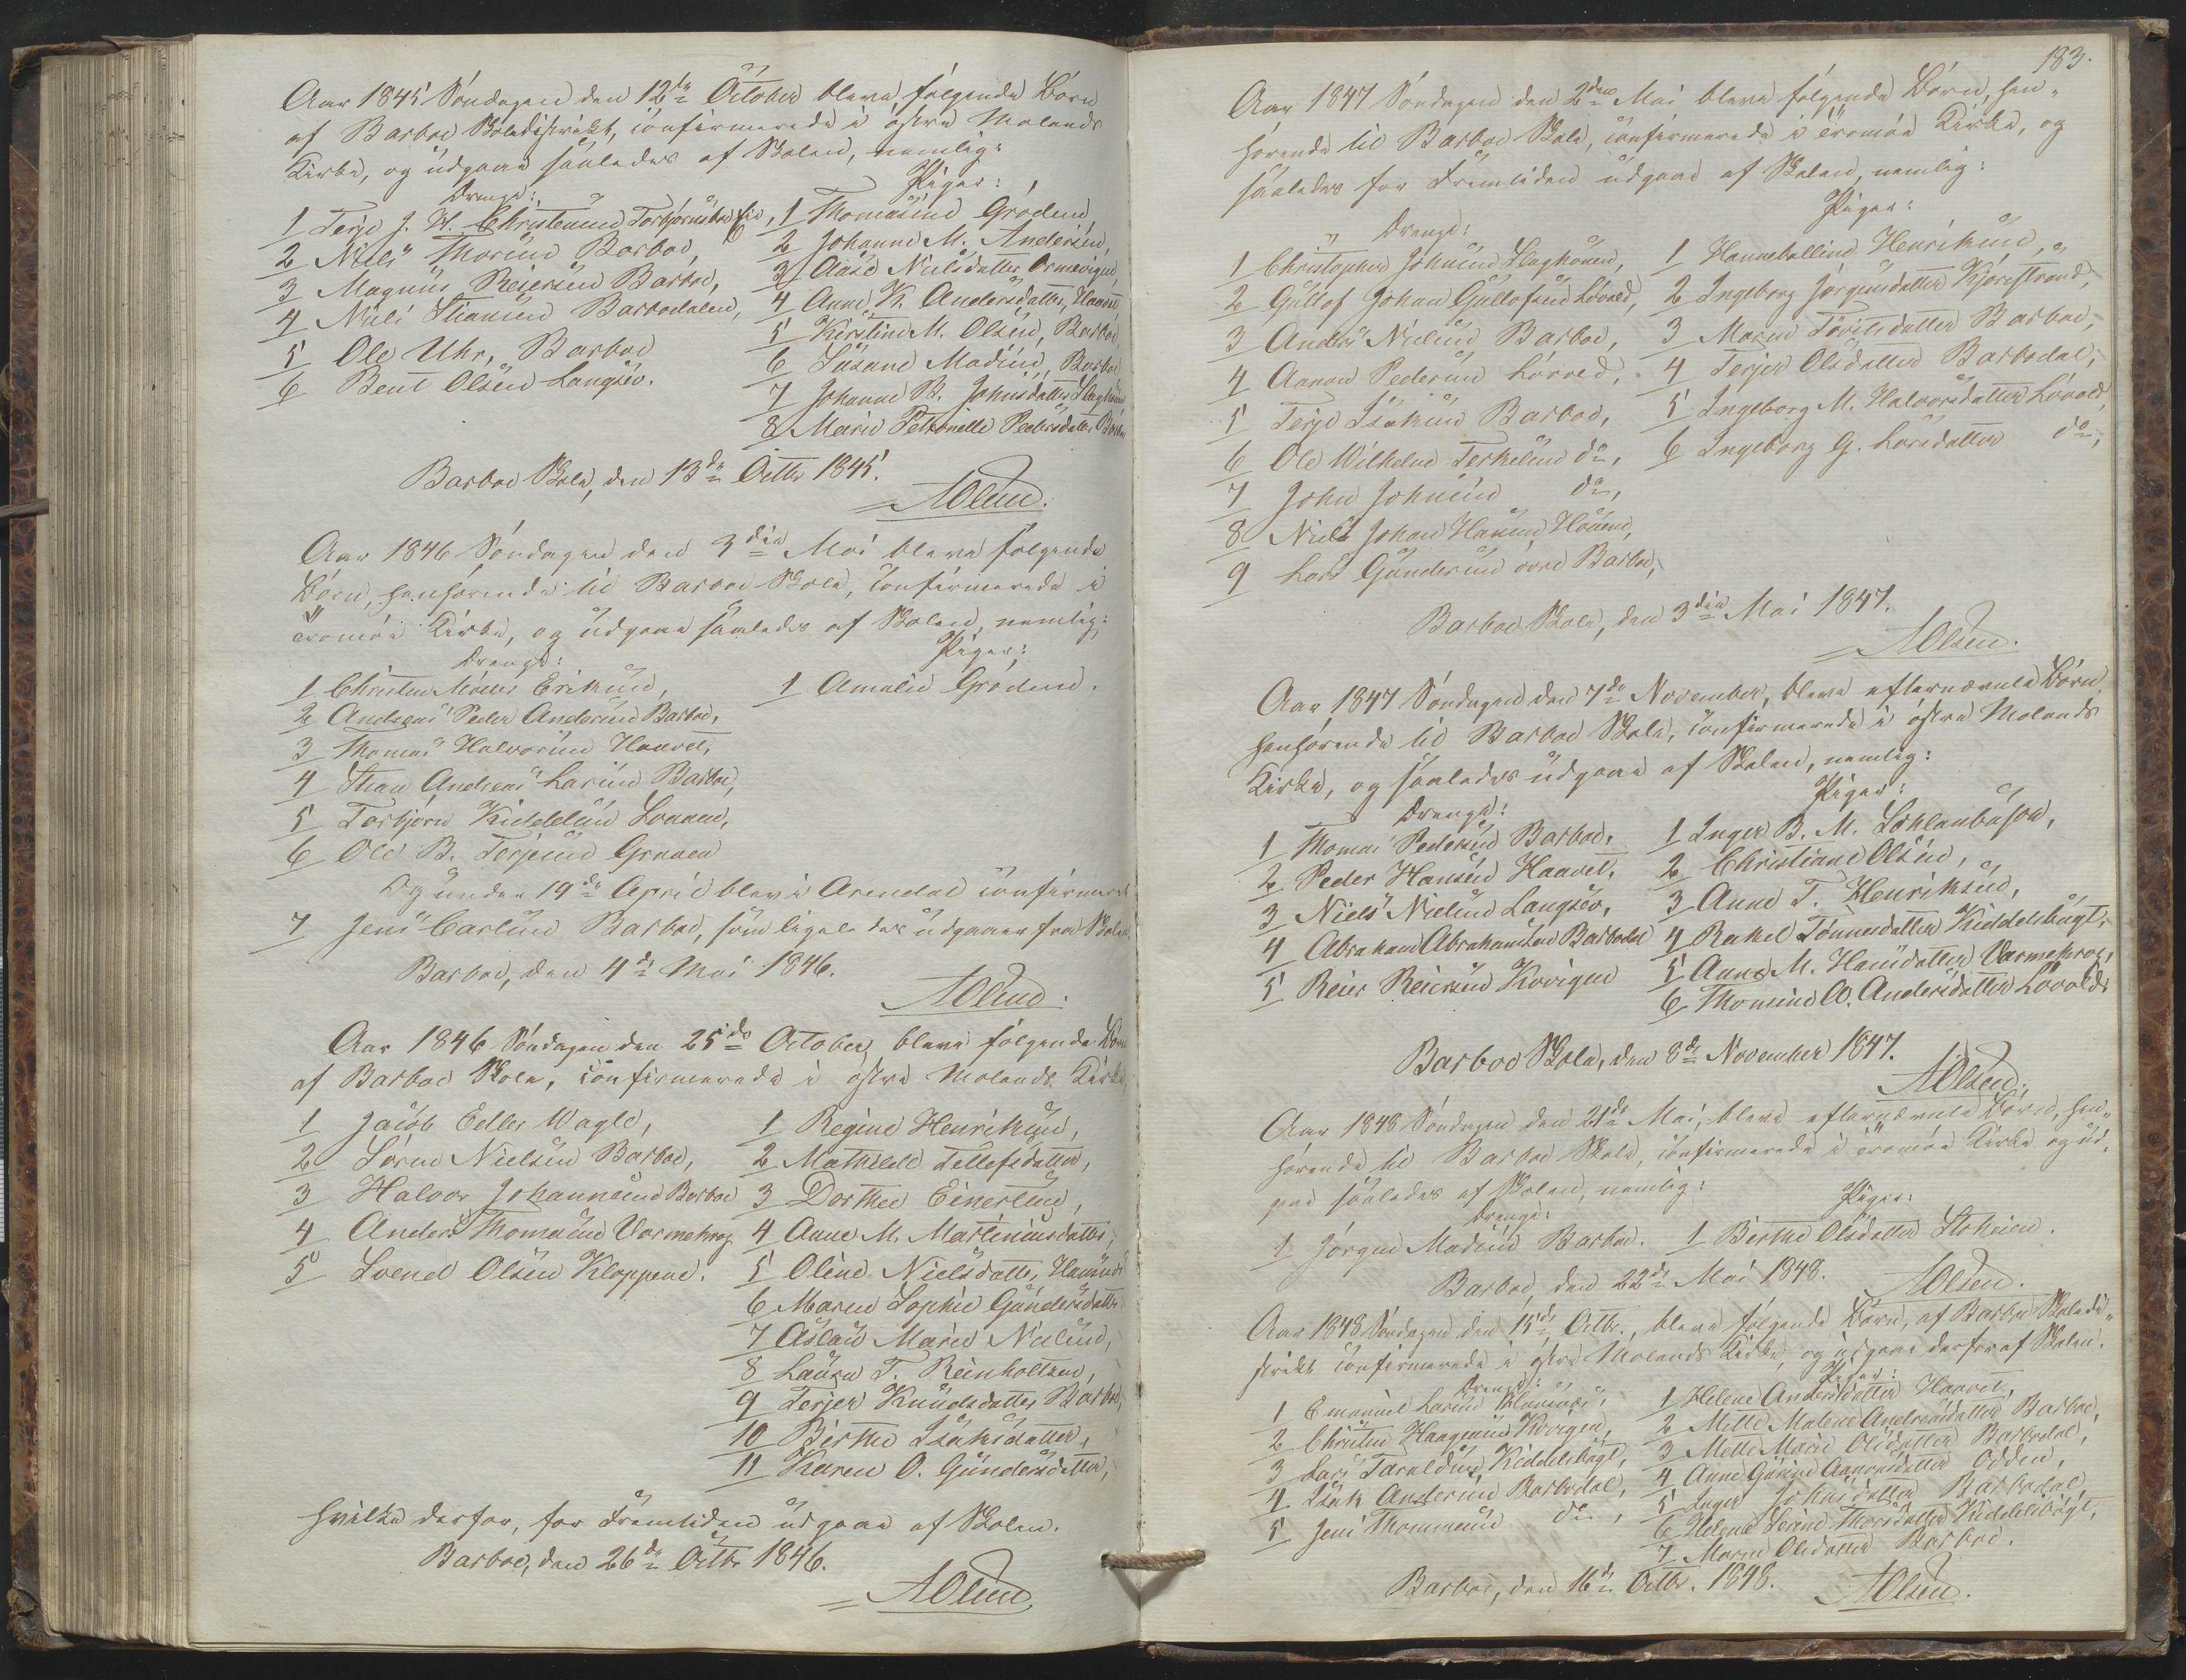 Aar 1845 Søndagen den 12te October bleve følgende Børn
af Barboe Skoledistrikt, confirmerede i østre Molands
Kirke, og udgaae saaledes af Skolen, nemlig:
Drenge: Piger:
1 Terje J. H. Christensen Torbjørnsboe 1 Thomasine Grødem,
2 Niels Thorsen Barboe, 2 Johanne M. Andersen,
3 Magnus Reiersen Barboe, 3 Aase Nielsdatter Ormevigen,
4 Niels Stiansen Barbodalen, 4 Anne K. Andersdatter, Haavet,
5 Ole Uhr, Barboe 5 Kirstine M. Olsen, Barboe,
6 Bent Olsen Langsev. 6 Susane Madsen, Barboe
7 Johanne B. Johnsdatter
8 Marie Petronelle Pedersdatter
Barboe Skole, den 13de Octbr 1845.
AOlsen.
Aar 1846 Søndagen den 3die Mai bleve følgende
Børn, henhørende til Barboe Skole, confirmerede i
Tromøe Kirke, og udgaae saaledes af Skolen, nemlig:
Drenge: Piger:
1 Christen Eriksen, 1 Amalie Grødem.
2 Andreas Peder Andersen Barboe,
3 Thomas Halvorsen Haavet,
4 Stian Andreas Larsen Barboe,
5 Torbjørn Kiddelsen Longum,
6 Ole B. Terjesen Graaen
Og under 19de April blev i Arendal confirmeret
7 Jens Carlsen Barboe, som ligeledes udgaaer fra Skolen.
Barboe, den 4de Mai 1846.
AOlsen.
Aar 1846 Søndagen den 25de October, bleve følgende Børn
af Barboe Skole, confirmerede i østre Molands Kirke,
1 Jacob Edler Wagle, 1 Regine Henriksen,
2 Søren Nielsen Barboe, 2 Mathilde Tellefsdatter,
3 Halvor Johannesen Barboe 3 Dorthee Einersen,
4 Anders Thomasen Varmekrog 4 Anne M. Martinusdatter,
5 Svend Olsen Kloppene. 5 Oline Nielsdatter,
6 Maren Sophie Gundersdatter
7 Aslau Marie Nielsen,
8 Laura T. Reinholtsen,
9 Terjer Knudsdatter Barboe,
10 Birthe Isaksdatter,
11 Karen O. Gundersdatter,
hvilke derfor, for Fremtiden udgaae af Skolen.
Barboe, den 26de Octbr 1846.
AOlsen.
183.
Aar 1847 Søndagen den 2den Mai bleve følgende Børn, hen-
hørende til Barboe Skole, confirmerede i Tromøe Kirke, og
saaledes for Fremtiden udgaae af Skolen, nemlig:
Drenge: Piger:
1 Christopher Johnsen 1 Henriksen,
2 Gullof Johan Gullofsen Løvold, 2 Ingeborg Jørgensdatter Kjørrstrand,
3 Anders Nielsen Barboe, 3 Maren Torilsdatter Barboe,
4 Aanon Pedersen Løvold, 4 Terjer Olsdatter Barbodal,
5 Terje Isaksen Barboe, 5 Ingeborg M. Halvorsdatter Løvold,
6 Ole Wilhelm Terkelsen do, 6 Ingeborg G. Larsdatter do,
7 John Johnsen do,
8 Niels Johan Hansen
9 Lars Gundersen øvre Barboe,
Barboe Skole, den 3die Mai 1847.
AOlsen.
Aar 1847 Søndagen den 7de November, bleve efternævnte Børn,
henhørende til Barboe Skole, confirmerede i østre Molands
Kirke, og saaledes udgaae af Skolen, nemlig:
Drenge: Piger:
1 Thomas Pedersen Barboe, 1 Inger B. M.
2 Peder Hansen Haavet, 2 Christiane Olsen,
3 Niels Nielsen Langsev, 3 Anne T. Henriksen,
4 Abraham Abrahamsen Barbodal 4 Rakel Tønnesdatter Kiddelsbugt,
5 Reier Reiersen Kovigen 5 Anne M. Hansdatter Varmekrog,
6 Thomine O. Andersdatter Løvold,
Barboe Skole, den 8de November 1847.
AOlsen.
Aar 1848 Søndagen den 21de Mai, bleve efternævnte Børn, hen-
hørende til Barboe Skole, confirmerede i Tromøe Kirke og ud-
gaae saaledes af Skolen, nemlig:
Drenge: Piger:
1 Jørgen Madsen Barboe. 1 Birthe Olsdatter Stoheien.
Barboe, den 22de Mai 1848. AOlsen.
Aar 1848 Søndagen den 15de Octbr., bleve følgende Børn, af Barboe Skoledi-
strikt confirmerede i østre Molands Kirke, og udgaae derfor af Skolen.
Drenge: Piger:
1 Emanuel Larsen 1 Helene Andersdatter Haavet,
2 Christen Haagensen Kovigen, 2 Mette Malene Andreasdatter Barboe,
3 Lars Taraldsen, Kiddelsbugt, 3 Mette Marie Olsdatter Barbodal,
4 Isak Andersen Barbodal, 4 Anne Gurine Aanonsdatter Odden,
5 Jens Thommesen do, 5 Inger Johnsdatter Barbodal,
6 Helene Serine Thorsdatter Kiddelsbugt,
7 Maren Olsdatter Barboe.
Barboe, den 16de Octbr. 1848. AOlsen.